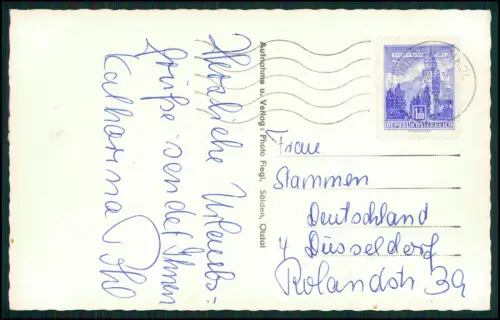 Herzliche Urlaubs=
grüße sendet Ihnen
Katharina Pohl
Aufnahme u. Verlag: Photo Fiegl, Sölden, Ötztal
1.50
REPUBLIK ÖSTERREICH
Frau
Stammen
Deutschland
4 Düsseldorf
Rolandstr 39